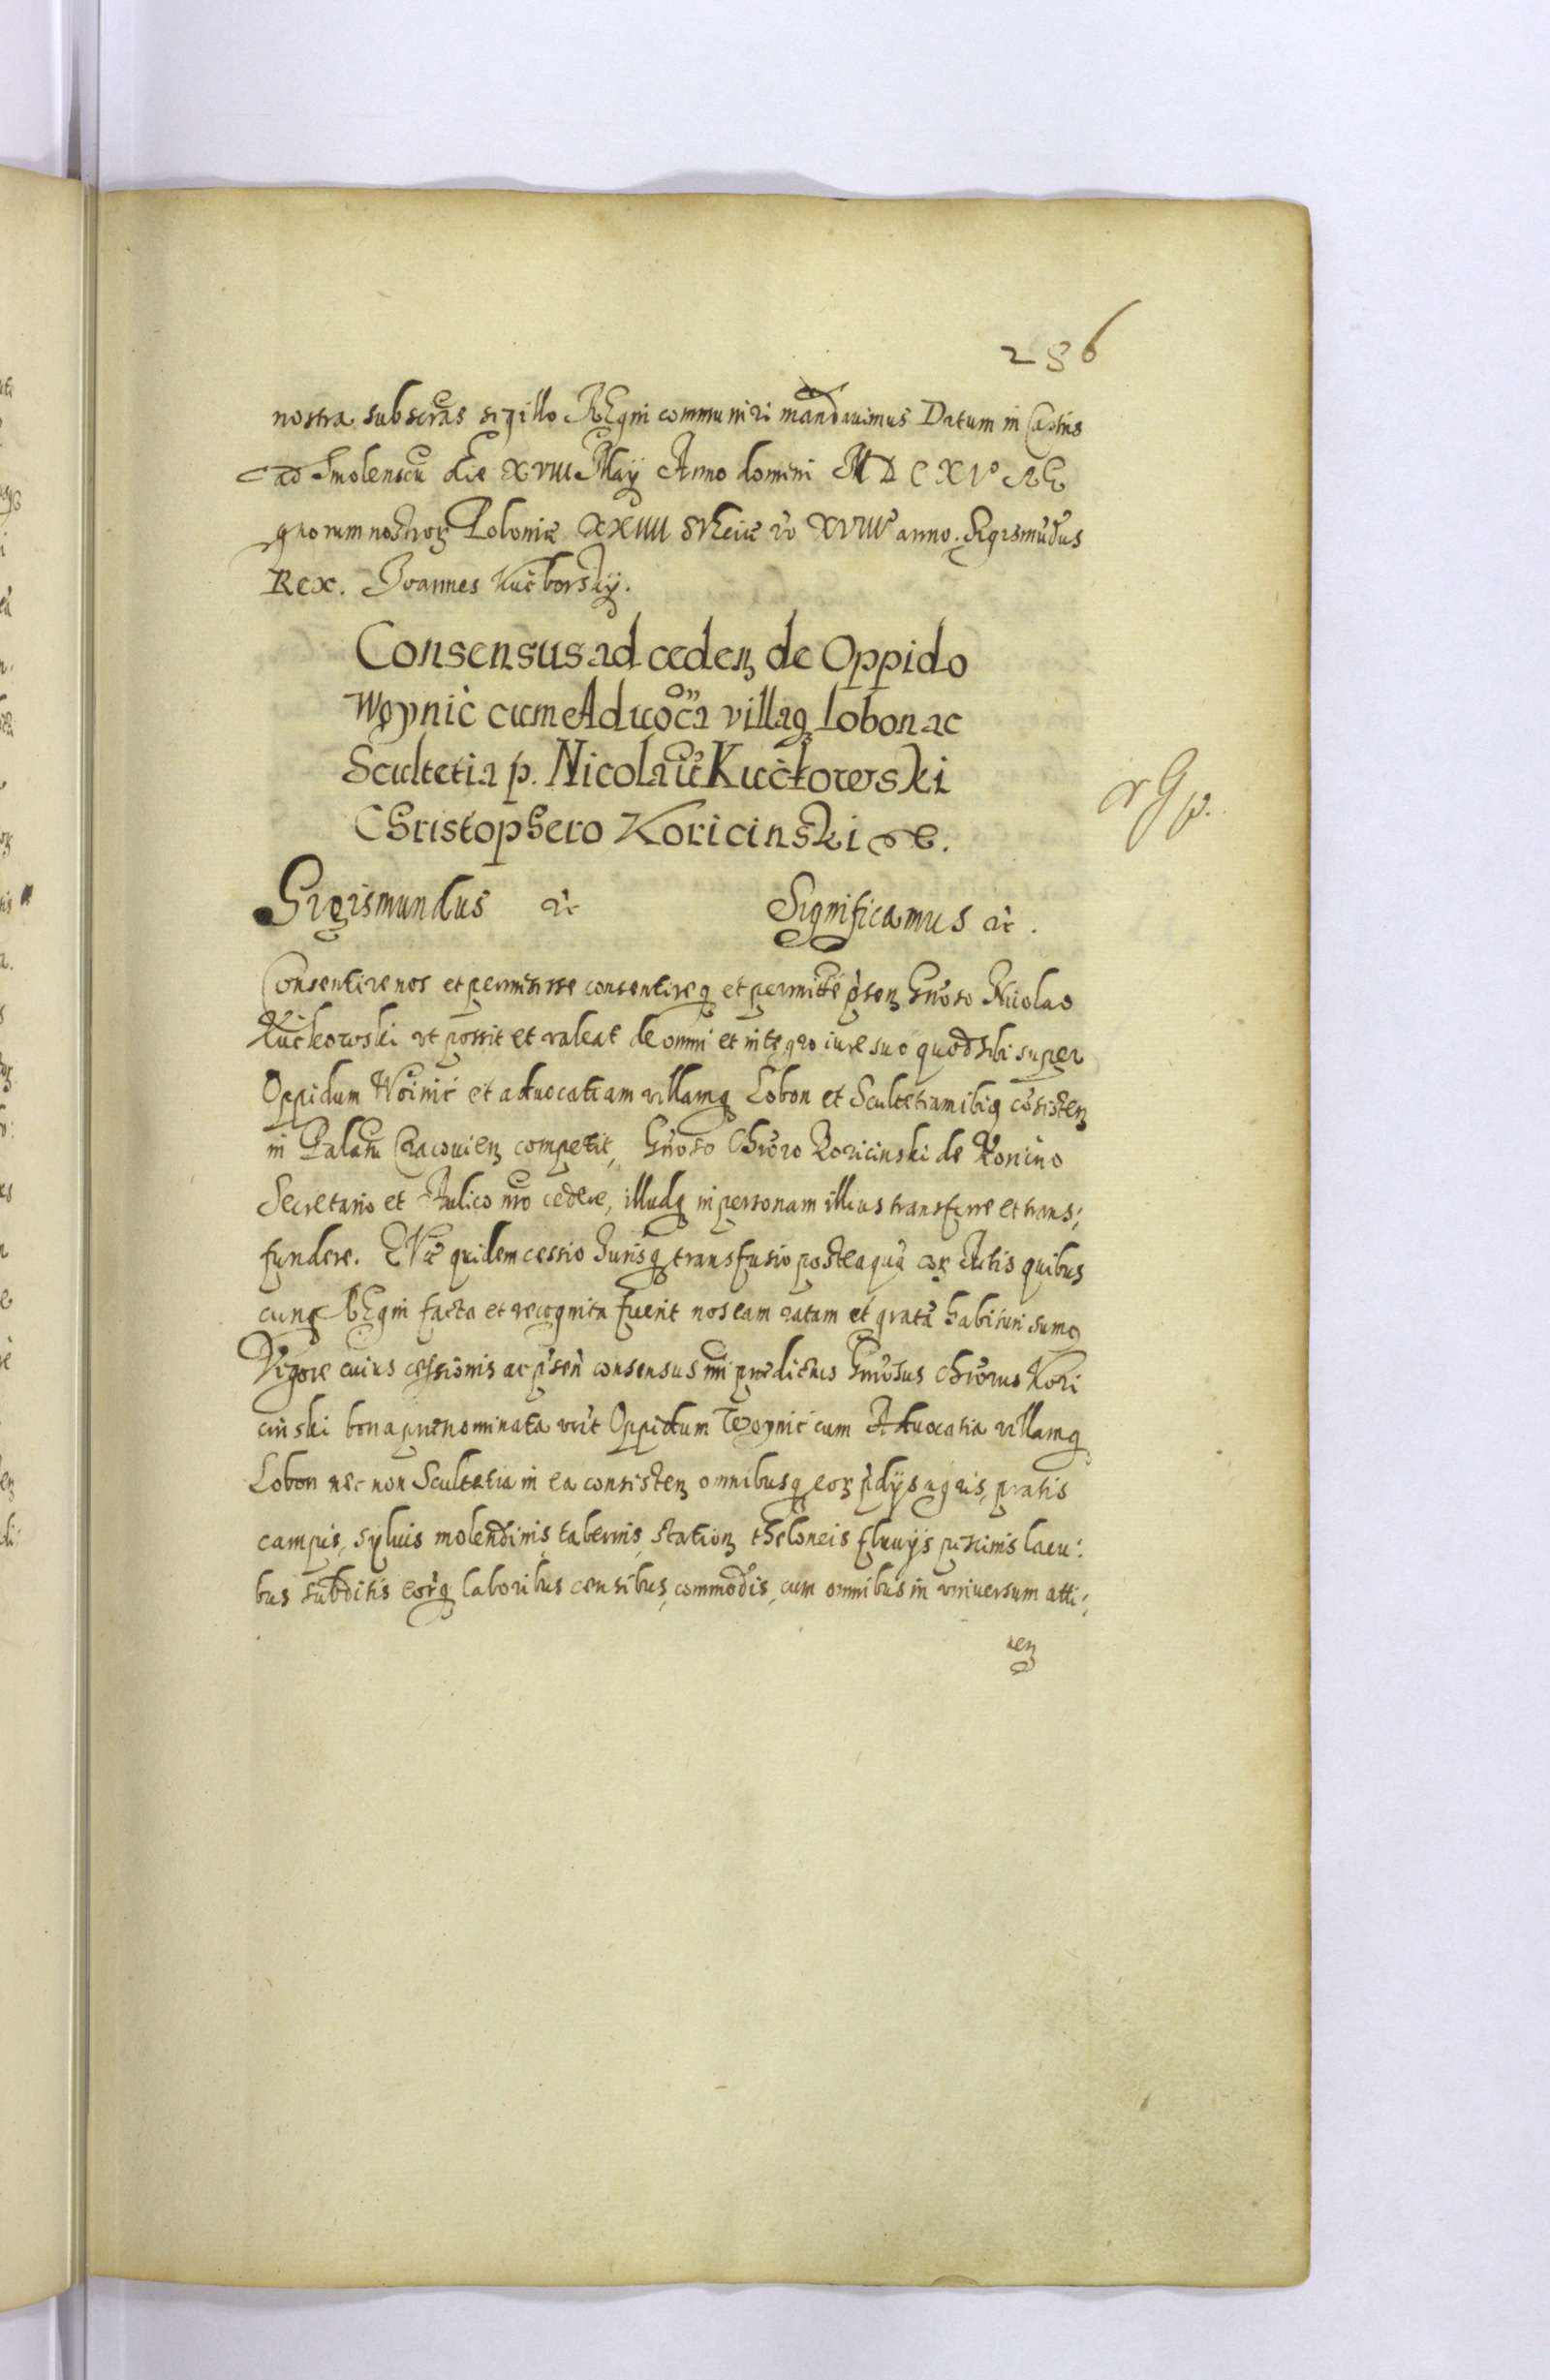 286
nostra subscras sigillo REgni communiri mandauimus Datum in Castris
ad Smolenscu Die XVIII May Anno domini MDCXI° RE
gnorum nostroꝝ Poloniæ XXIIII SVeciæ vo XVIII° anno. Sigismūdus
Rex. Joannes Kuc̀borskÿ.
Consensus ad cedenꝫ de Oppido
Woynic̀ cum Aduocã villaqꝫ Lobon ac
Scultetia p. Nicolaũ Kuc̀kowski
Christophero Koricinski &c.
rgp.
Sigismundus &c Significamus &c.
Consentire nos et permisisse consentireqꝫ et permittẽ p̀senꝫ Gñoso Nicolao
Kuc̀kowski vt possit et valeat de omni et integro iure suo quod sibi super
Oppidum Woinic̀ et aduocatiam villamqꝫ Lobon et Scultetiam ibiqꝫ cõsistenꝫ
in Palatũ Cracouienꝫ competit, Gñoso Chr̃oro Koricinski de Koricino
Secretario et Aulico nr̃o cedere, illudqꝫ in personam illius transferre et trans:
fundere. QVæ quidem cessio Jurisqꝫ transfusio posteaquã corꝫ Actis quibus
cunqꝫ REgni facta et recognita fuerit nos eam ratam et gratã habituri sumꝰ
Vigore cuius cessionis ac p̀señ consensus nr̃i prædictus Gñosus Chr̃orus Kori
cinski bona prænominata vtt̀ Oppidum Woynic̀ cum Aduocatia villamqꝫ
Lobon nec non Scultetia in ea consistenꝫ omnibusqꝫ eoꝝ p̀dÿs agris, pratis
campis, syluis molendinis, tabernis, stationꝫ theloneis fluuÿs piscinis lacu:
bus subditis eor̀qꝫ laboribus censibus, commodis, cum omnibus in vniuersum atti:
nenꝫ